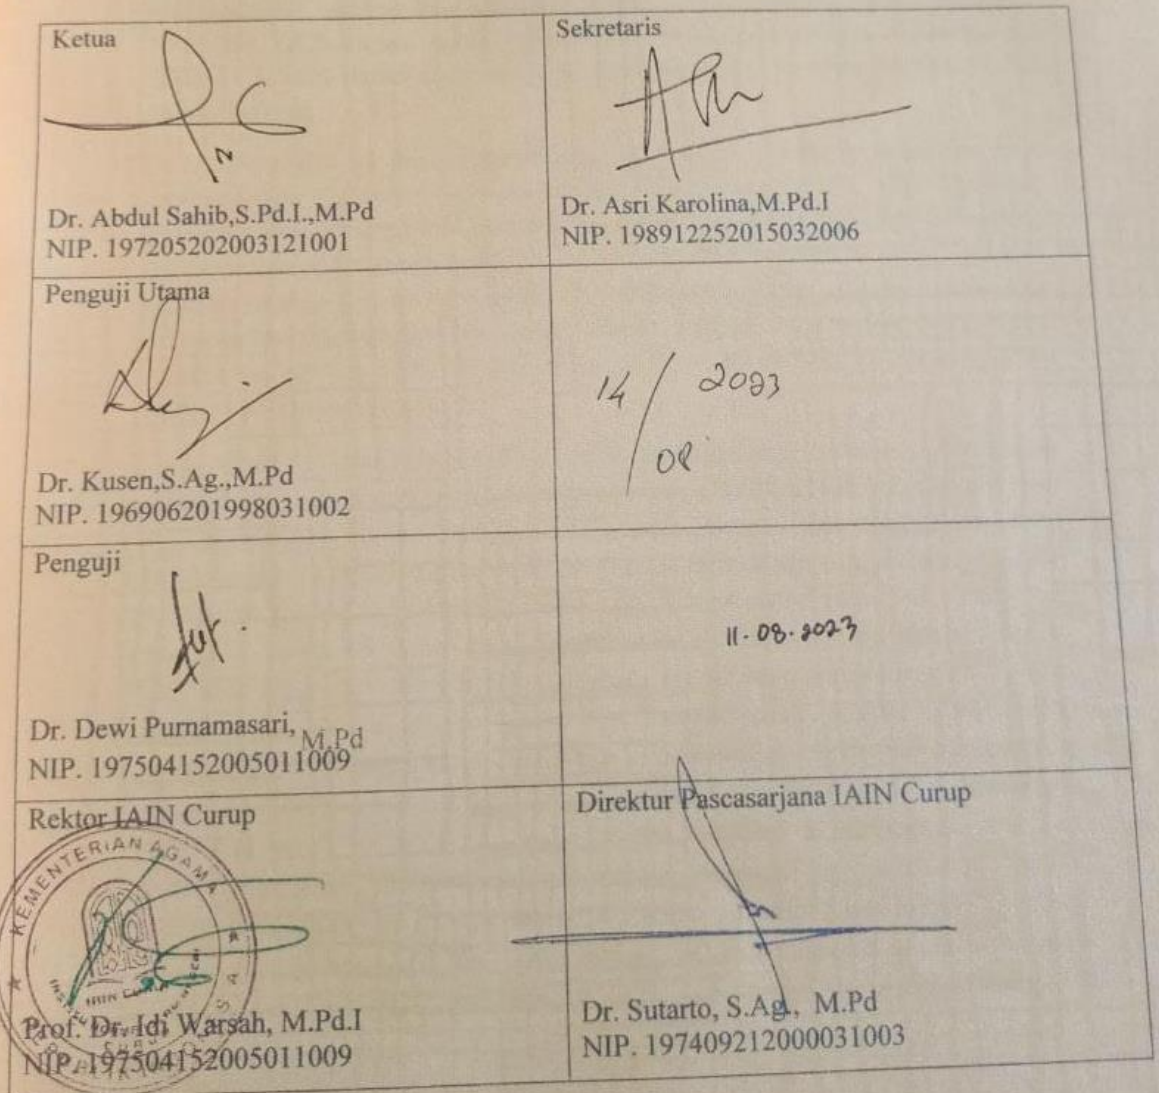 Ketua
Dr. Abdul Sahib,S.Pd.I.,M.Pd
NIP. 197205202003121001
Sekretaris
Dr. Asri Karolina,M.Pd.I
NIP. 198912252015032006
Penguji Utama
Dr. Kusen,S.Ag.,M.Pd
NIP. 196906201998031002
14 / 2023
08
Penguji
Dr. Dewi Purnamasari, M.Pd
NIP. 197504152005011009
11-08-2023
Rektor IAIN Curup
KEMENTERIAN AGAMA
IAIN CURUP
Prof. Dr. Idi Warsah, M.Pd.I
NIP. 197504152005011009
Direktur Pascasarjana IAIN Curup
Dr. Sutarto, S.Ag., M.Pd
NIP. 197409212000031003